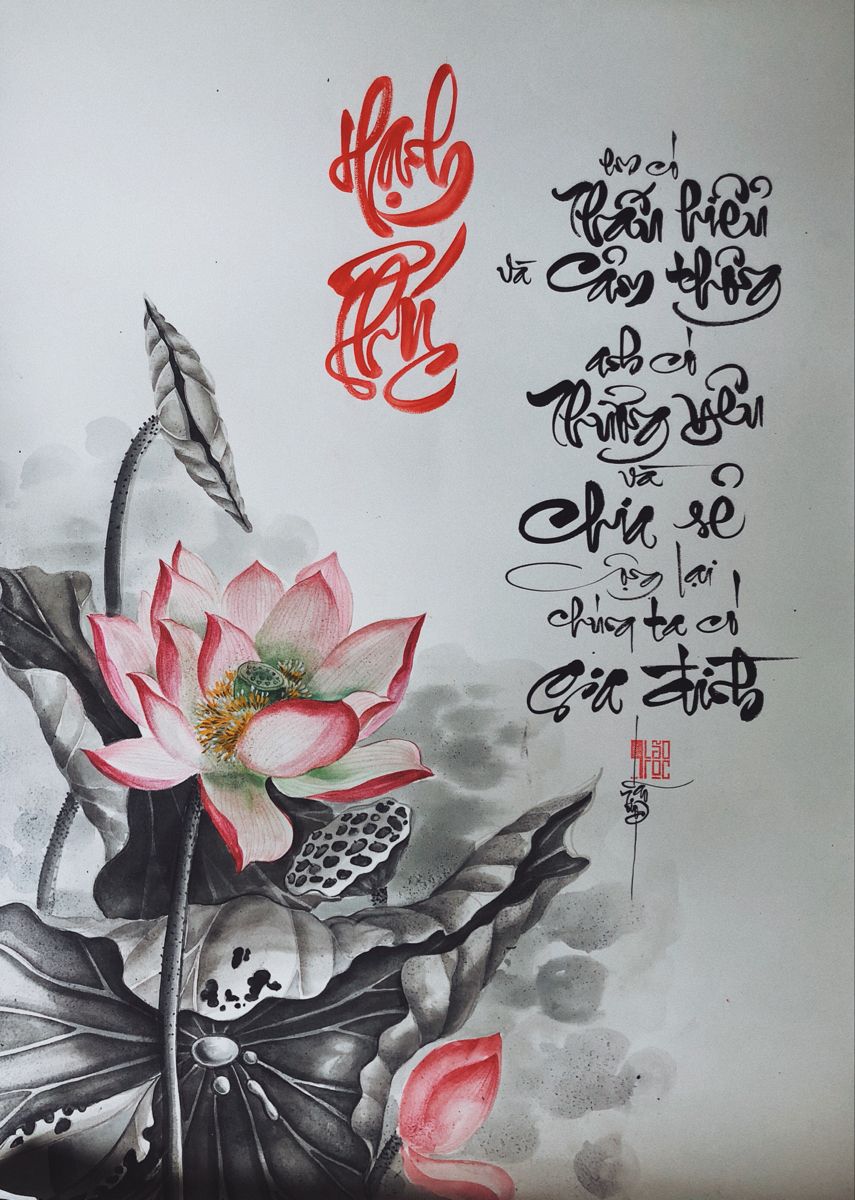 Hạnh
Phúc
em có
Thấu hiểu
và Cảm thông
anh có
Thương yêu
và
Chia sẻ
Cộng lại
chúng ta có
Gia đình
LÃO
TỘC